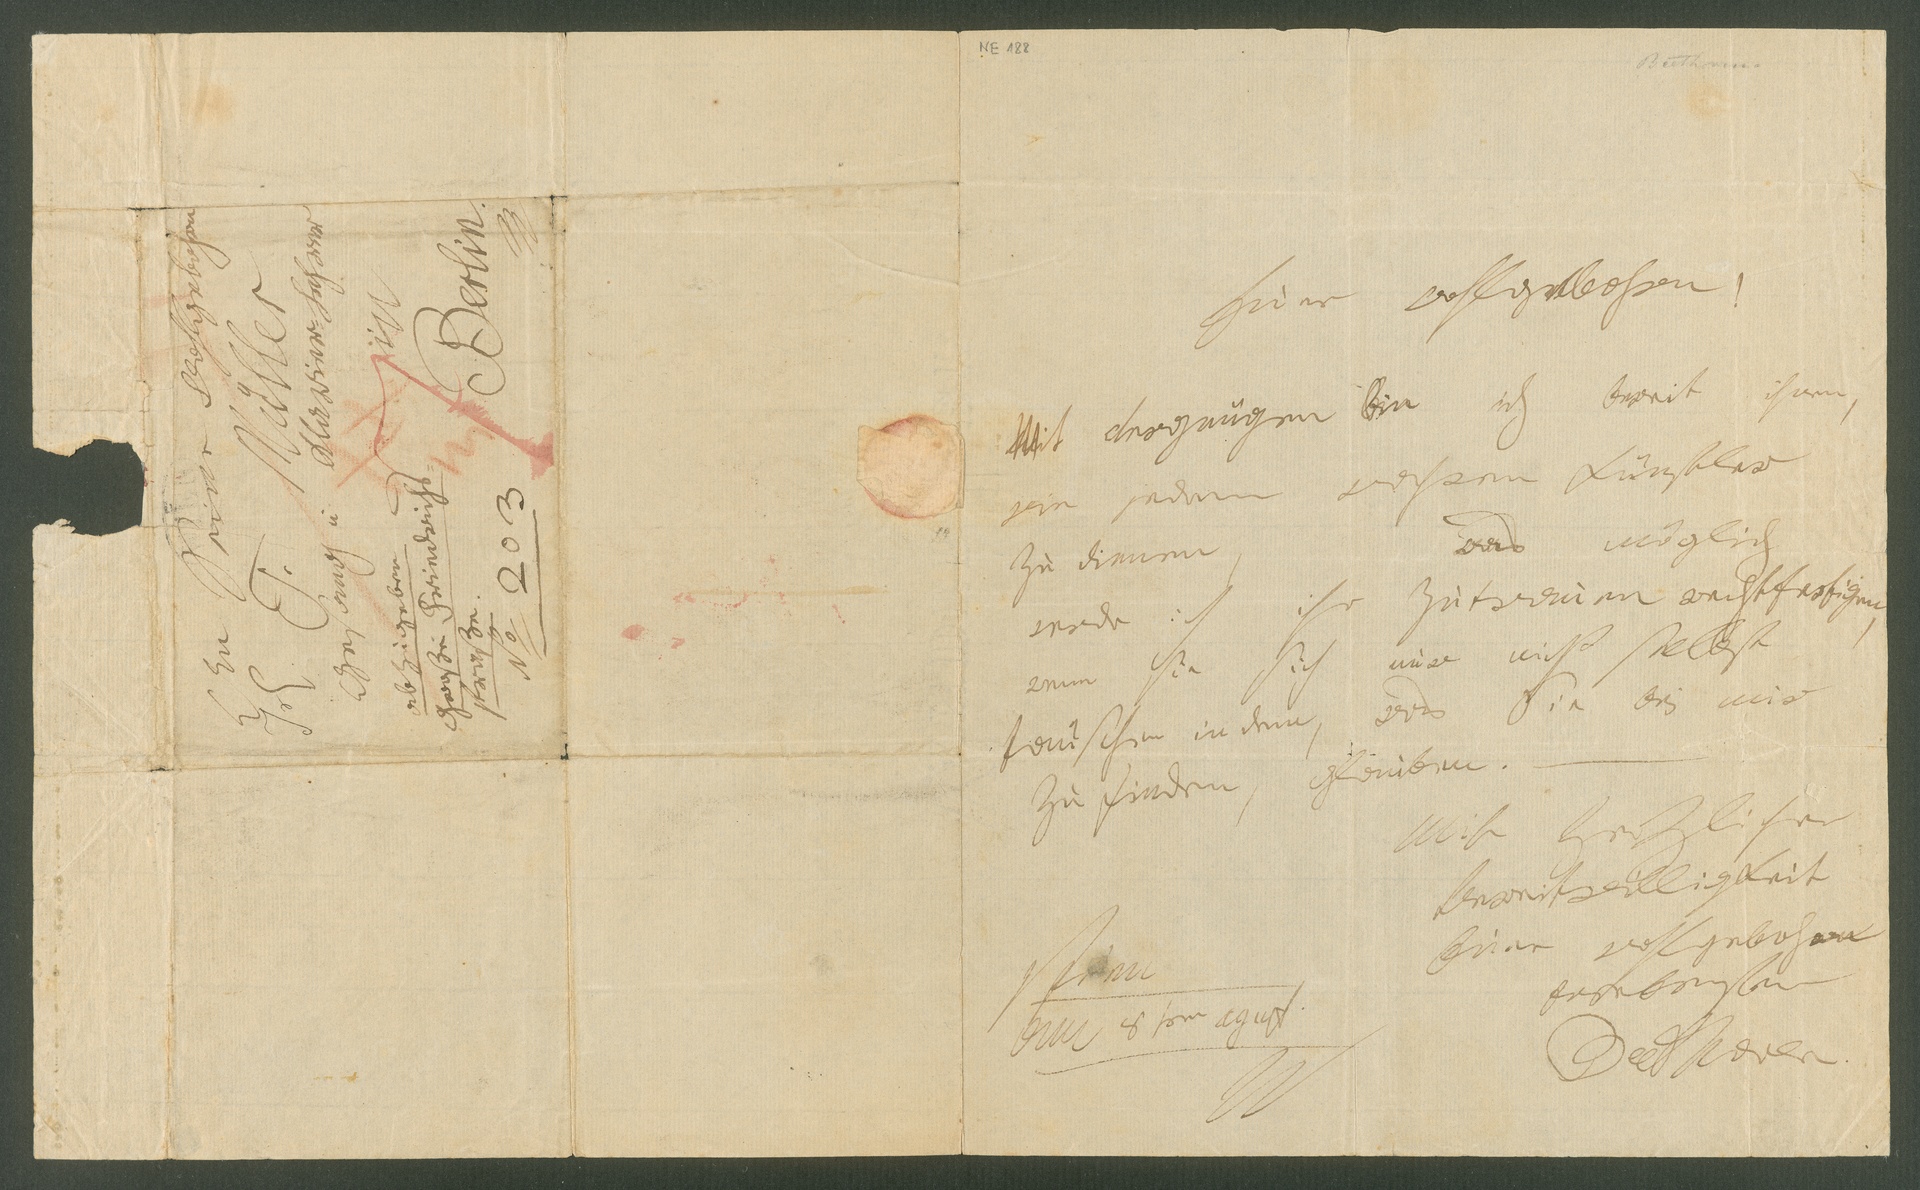 NE 188
Beethoven
Euer wohlgebohren!
Mit Vergnügen bin ich bereit ihnen,
wie jedem wahren Künstler
zu dienen, was möglich
werde ich ihr Zutrauen rechtfertigen,
wenn Sie sich nur nicht selbst
täuschen in dem, was Sie bey mir
zu finden, glauben. —
Mit herzlicher
bereitwilligkeit
Euer wohlgebohren
ergebenster
Beethoven.
Wien
am 8ten August.
An Seine Wohlgebohren
H. T. Müller
Gesang u Klavier-Lehrer
in
Berlin.
abzugeben
große Friedrichs-
straße.
No 203